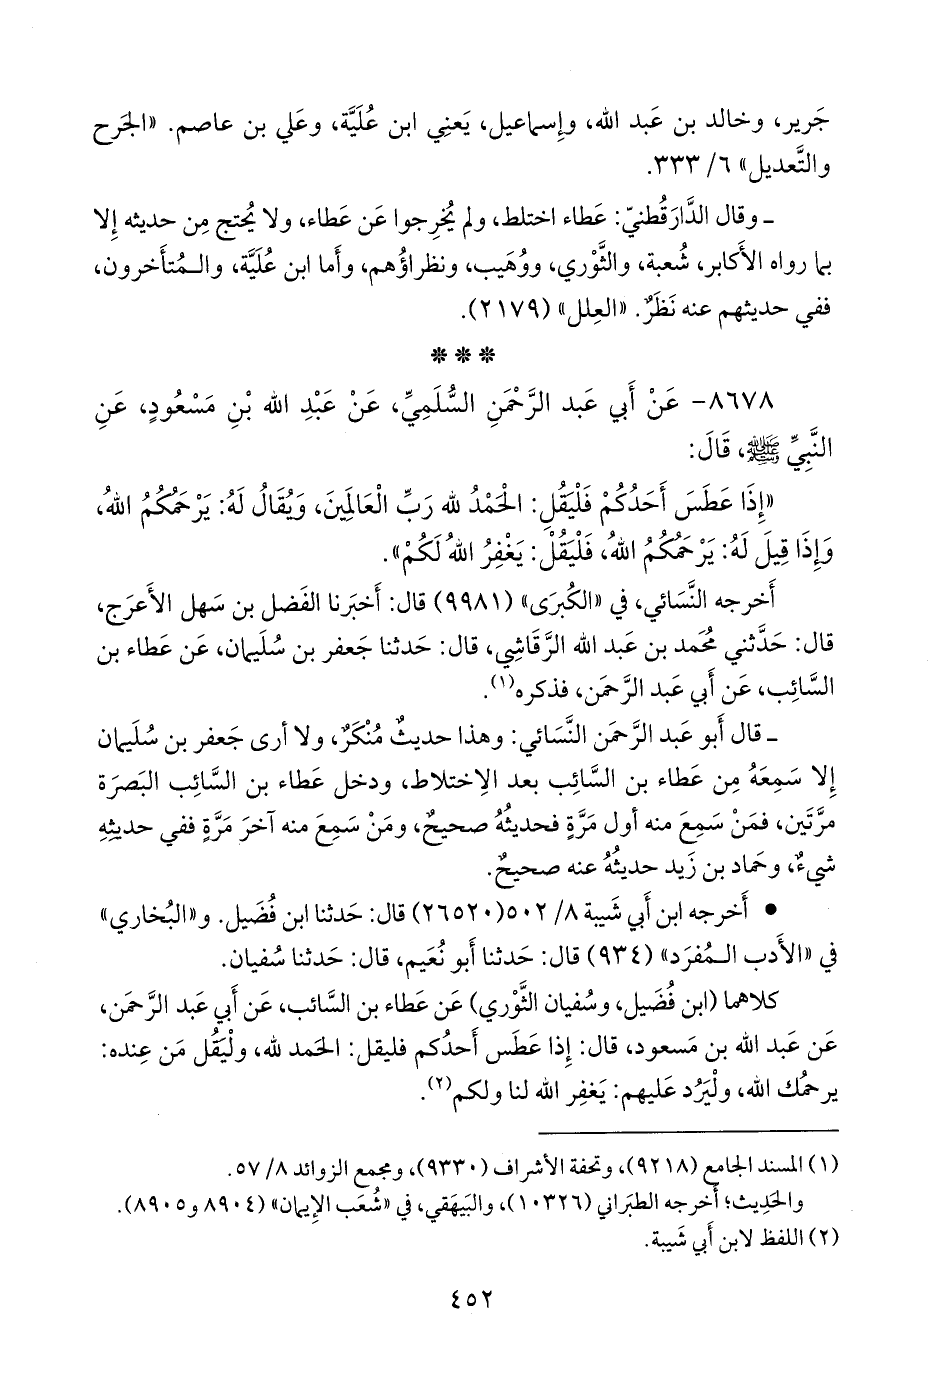 جَرير، وخالد بن عَبد الله، وإِسماعيل، يَعنِي ابن عُلَيَّة، وعَلي بن عاصم. «الجَرح
والتَّعديل» ٦/ ٣٣٣.
ـ وقال الدَّارَقُطنيّ: عَطاء اختلط، ولم يُخرِجوا عَن عَطاء، ولا يُحتج مِن حديثه إِلا
بما رواه الأَكابر، شُعبة، والثَّوري، ووُهَيب، ونظراؤُهم، وأَما ابن عُلَيَّة، والـمُتأَخرون،
ففي حديثهم عنه نَظَرٌ. «العِلل» (٢١٧٩).
* * *
٨٦٧٨- عَنْ أَبي عَبد الرَّحْمَنِ السُّلَمِيِّ، عَنْ عَبْدِ الله بْنِ مَسْعُودٍ، عَنِ
النَّبِيِّ ﷺ، قَالَ:
«إِذَا عَطَسَ أَحَدُكُمْ فَلْيَقُلِ: الْحَمْدُ لله رَبِّ الْعَالَمِينَ، وَيُقَالُ لَهُ: يَرْحَمُكُمُ اللهُ،
وَإِذَا قِيلَ لَهُ: يَرْحَمُكُمُ اللهُ، فَلْيَقُلْ: يَغْفِرُ اللهُ لَكُمْ».
أَخرجه النَّسَائي، في «الكُبرَى» (٩٩٨١) قال: أَخبَرنا الفَضل بن سَهل الأَعرَج،
قال: حَدَّثني مُحَمد بن عَبد الله الرَّقَاشِي، قال: حَدثنا جَعفر بن سُلَيمان، عَن عَطاء بن
السَّائِب، عَن أَبي عَبد الرَّحمَن، فذكره(١).
ـ قال أَبو عَبد الرَّحمَن النَّسَائي: وهذا حديثٌ مُنْكَرٌ، ولا أرى جَعفر بن سُلَيمان
إِلا سَمِعَهُ مِن عَطاء بن السَّائِب بعد الاِختلاط، ودخل عَطاء بن السَّائِب البَصرَة
مرَّتَين، فمَنْ سَمِعَ منه أول مَرَّةٍ فحديثُهُ صحيحٌ، ومَنْ سَمِعَ منه آخرَ مَرَّةٍ ففي حديثِهِ
شيءٌ، وحَماد بن زَيد حديثُهُ عنه صحيحٌ.
• أَخرجه ابن أَبي شَيبة ٨/ ٥٠٢(٢٦٥٢٠) قال: حَدثنا ابن فُضَيل. و«البُخاري»
في «الأَدب الـمُفرَد» (٩٣٤) قال: حَدثنا أَبو نُعَيم، قال: حَدثنا سُفيان.
كلاهما (ابن فُضَيل، وسُفيان الثَّوري) عَن عَطاء بن السَّائب، عَن أَبي عَبد الرَّحمَن،
عَن عَبد الله بن مَسعود، قال: إِذا عَطَس أَحدُكم فليقل: الحَمد لله، ولْيَقُل مَن عِنده:
يرحمُك الله، ولْيَرُد عَليهم: يَغفِر الله لنا ولكم(٢).
(١) المسند الجامع (٩٢١٨)، وتحفة الأشراف (٩٣٣٠)، ومجمع الزوائد ٨/ ٥٧.
والحَدِيث؛ أَخرجه الطبَراني (١٠٣٢٦)، والبَيهَقي، في «شُعَب الإِيمان» (٨٩٠٤ و٨٩٠٥).
(٢) اللفظ لابن أَبي شَيبة.
٤٥٢